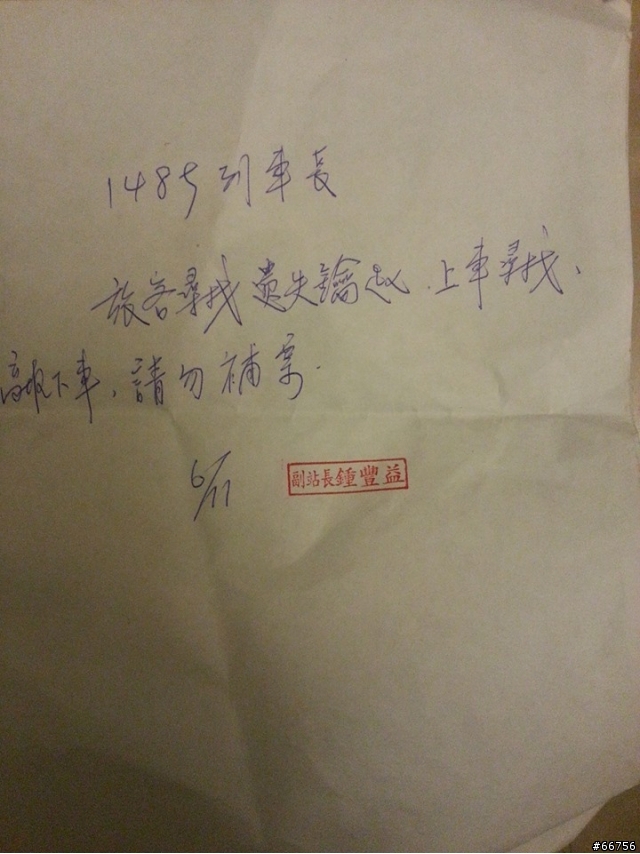 148号列車長
旅客尋找遺失鑰匙.上車尋找、
高雄下車,請勿補票.
6/11
副站長鍾豐益
#66756